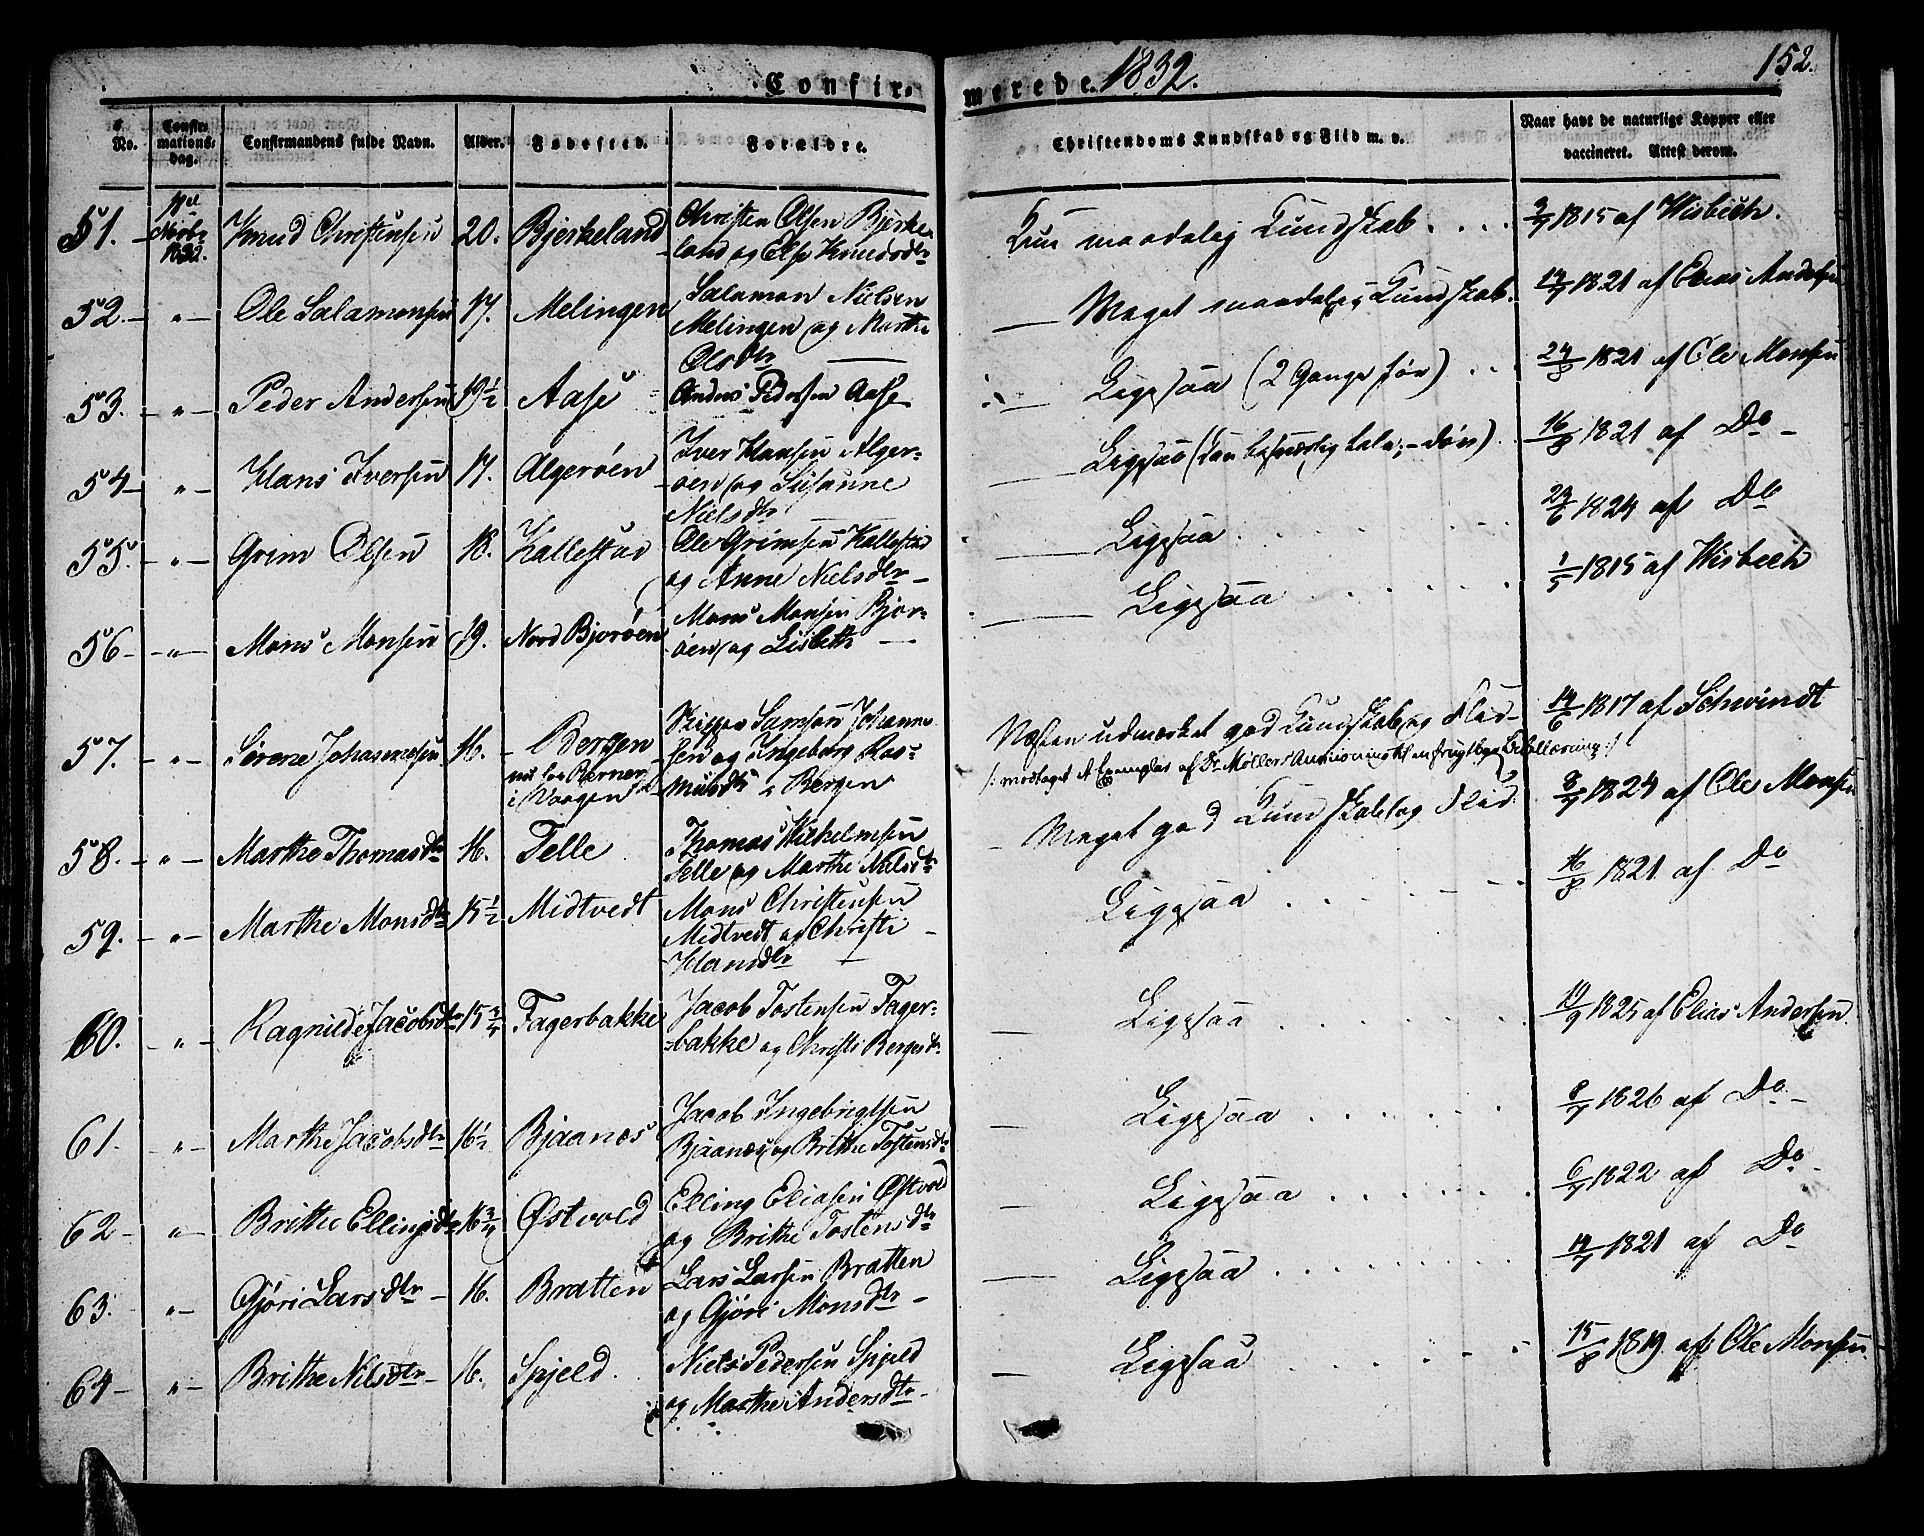 Confir- merede. 1832. 152.
No. Confirmationsdag. Confirmandens fulde Navn. Alder. Fødested. Forældre. Christendoms Kundskab og Flid m. v. Naar havt de naturlige Kopper eller vaccineret. Attest derom.
51. – Octbr 1832. Knud Christensen 20. Bjerkeland Christen Olsen Bjerke-
land og Else Knudsdtr Kun maadelig Kundskab . . . . 3/7 1815 af Wisbech.
52. – " – Ole Salamonsen 17. Melingen Salamon Nielsen
Melingen og Marthe
Olsdtr — Meget maadelig Kundskab. 14/7 1821 af Elias Andersen
53. – " – Peder Andersen 19 1/2 Aase Anders Pedersen Aase — Ligesaa (2 Gange før) . . 24/8 1821 af Ole Monsen
54 – " – Hans Iversen 17. Algerøen Iver Hansen Alger-
øen og Susanne
Nielsdtr — Ligesaa (kan besværlig tale; – døv) . 16/8 1821 af Do –
55. – " – Grim Olsen 18. Kallestad Ole Grimsen Kallestad
og Anne Nielsdtr – — Ligesaa . . . . . . 29/6 1824 af Do
56 – " – Mons Monsen 19. Nord Bjorøen Mons Monsen Bjor-
øen og Lisbeth — — Ligesaa . . . . . 1/5 1815 af Wisbech
57. – " – Sørene Johannesen 16. – Bergen
i Vaagen Skipper Samson Johanne-
sen og Ingeborg Ras-
musdtr i Bergen Næsten udmærket god Kundskab og Flid –
/: modtaget et Exemplar af Dr Møllers Anviisning til en frugtbar Bibellæsning :/ 14/6 1817 af Schwindt
58. – " – Marthe Thomasdtr 16. Telle Thomas Wilhelmsen
Telle og Marthe Nielsdtr – Meget god Kundskab og Flid. 8/7 1824 af Ole Monsen
59. – " – Marthe Monsdtr 15 1/2 Midtvedt Mons Christensen
Midtvedt og Christi
Hansdtr — Ligesaa . . . . 16/8 1821 af Do
60. – " – Ragnilde Jacobsdtr 15 3/4 Fagerbakke Jacob Tostensen Fager-
bakke og Christi Bergesdtr — Ligesaa . . . . . . 19/9 1825 af Elias Andersen
61. " – Marthe Jacobsdtr 16 1/2 Bjaanes Jacob Ingebrigtsen
Bjaanes og Brithe Tostensdtr — Ligesaa . . . . . . 8/7 1826 af Do –
62 – " – Brithe Ellingsdtr 16 3/4 Østvold Elling Eliasen Østvold
og Brithe Tostensdtr — Ligesaa . . . . . . 6/7 1822 af Do –
63. " – Gjøri Larsdtr – 16. Bratten Lars Larsen Bratten
og Gjøri Monsdtr – — Ligesaa . . . . . . . 14/7 1821 af Do
64 – " – Brithe Nilsdtr – 16. Spjeld. Niels Pedersen Spjeld
og Marthe Andersdtr – — Ligesaa . . . . . 15/8 1819 af Ole Monsen